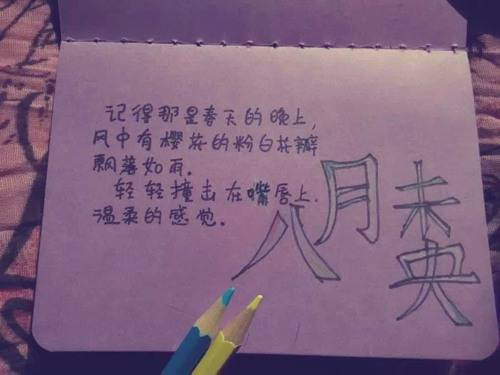 记得那是春天的晚上，
风中有樱花的粉白花瓣
飘落如雨．
轻轻撞击在嘴唇上．
温柔的感觉．
八月未央